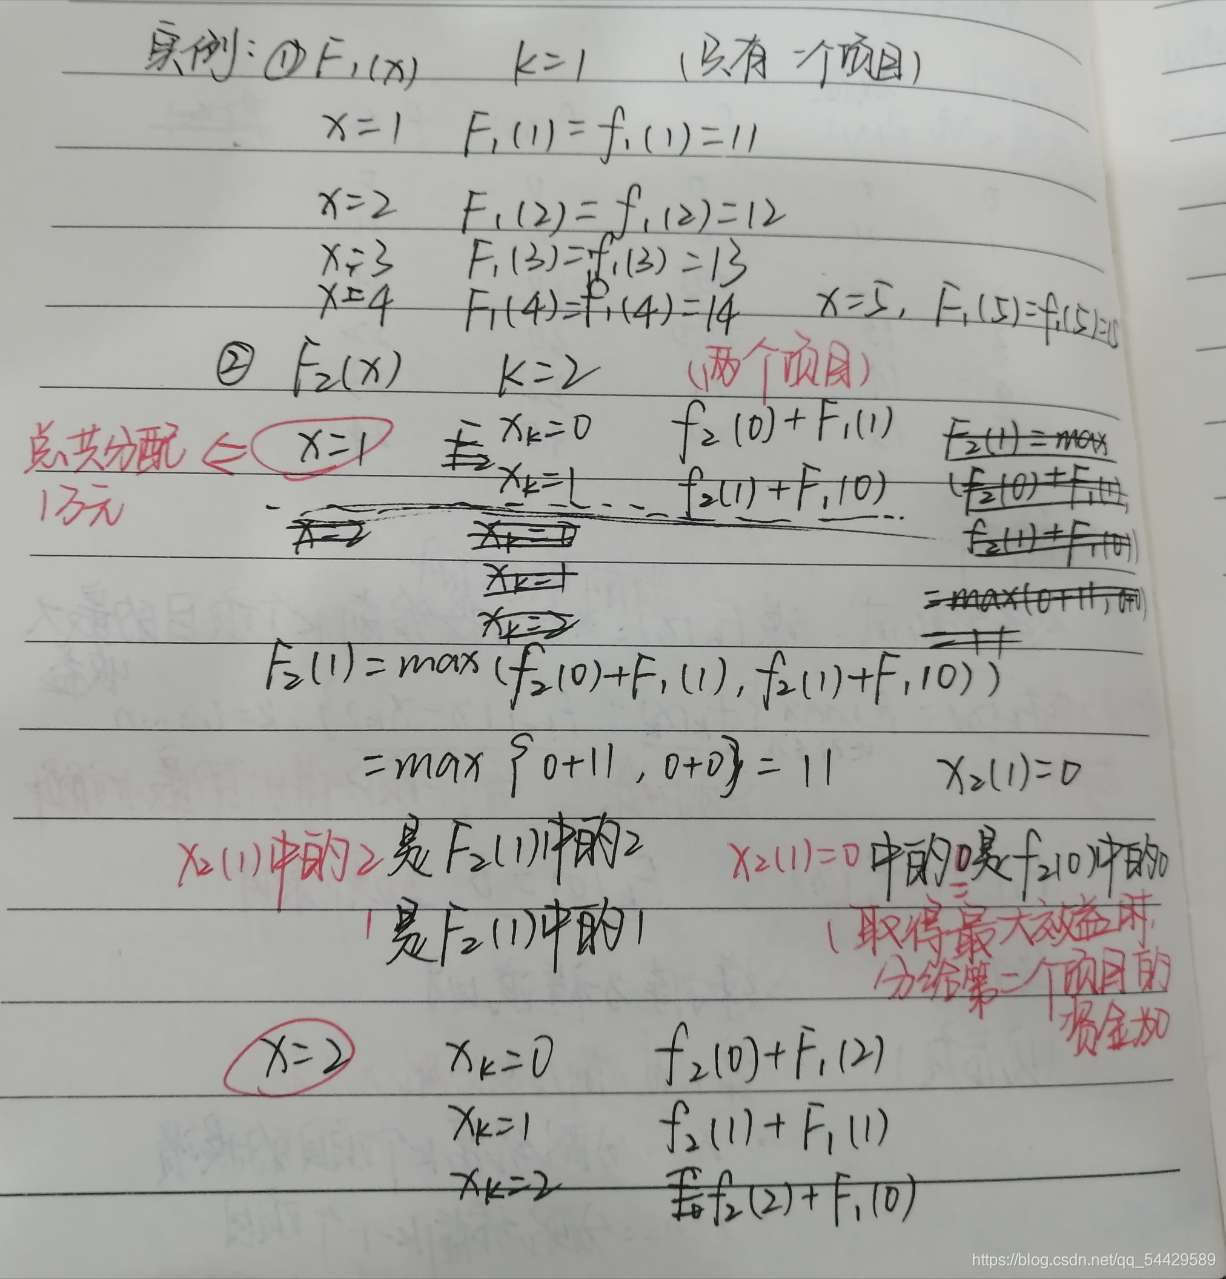 实例: ① F₁(x) k=1 (只有一个项目)
x=1 F₁(1)=f₁(1)=11
x=2 F₁(2)=f₁(2)=12
x=3 F₁(3)=f₁(3)=13
x=4 F₁(4)=f₁(4)=14 x=5, F₁(5)=f₁(5)=15
② F₂(x) k=2 (两个项目)
总共分配 ⇐ x=1 xₖ=0 f₂(0)+F₁(1) F₂(1)=max
1万元 xₖ=1 f₂(1)+F₁(0) (f₂(0)+F₁(1),
x=2 xₖ=0 f₂(1)+F₁(0))
xₖ=1 =max(0+11, 0+0)
xₖ=2 =11
F₂(1)=max(f₂(0)+F₁(1), f₂(1)+F₁(0))
=max{0+11, 0+0}=11 x₂(1)=0
x₂(1)中的2是F₂(1)中的2 x₂(1)=0中的0是f₂(0)中的0
1是F₂(1)中的1 (取得最大效益时,
分给第二个项目的
资金为0
x=2 xₖ=0 f₂(0)+F₁(2)
xₖ=1 f₂(1)+F₁(1)
xₖ=2 f₂(2)+F₁(0)
https://blog.csdn.net/qq_54429589